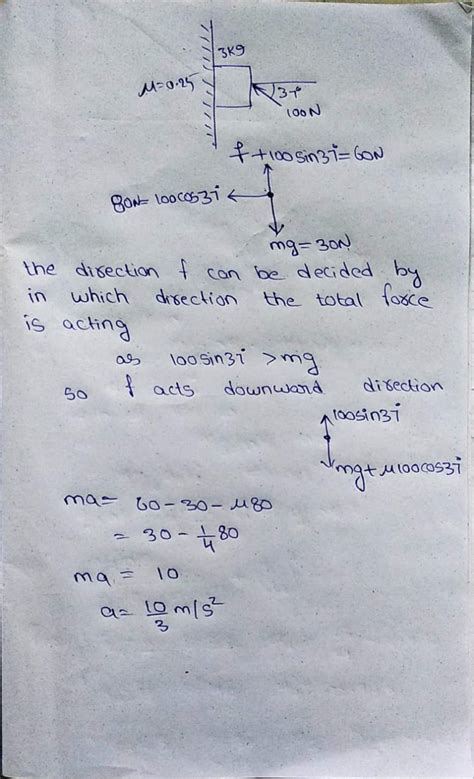 3kg
μ=0.25
37°
100N
f+100sin37°=60N
80N=100cos37°
mg=30N
the direction f can be decided by
in which direction the total force
is acting
as 100sin37° >mg
so f acts downward direction
100sin37°
mg+μ100cos37°
ma= 60-30-μ80
= 30-1/4 80
ma = 10
a= 10/3 m/s²